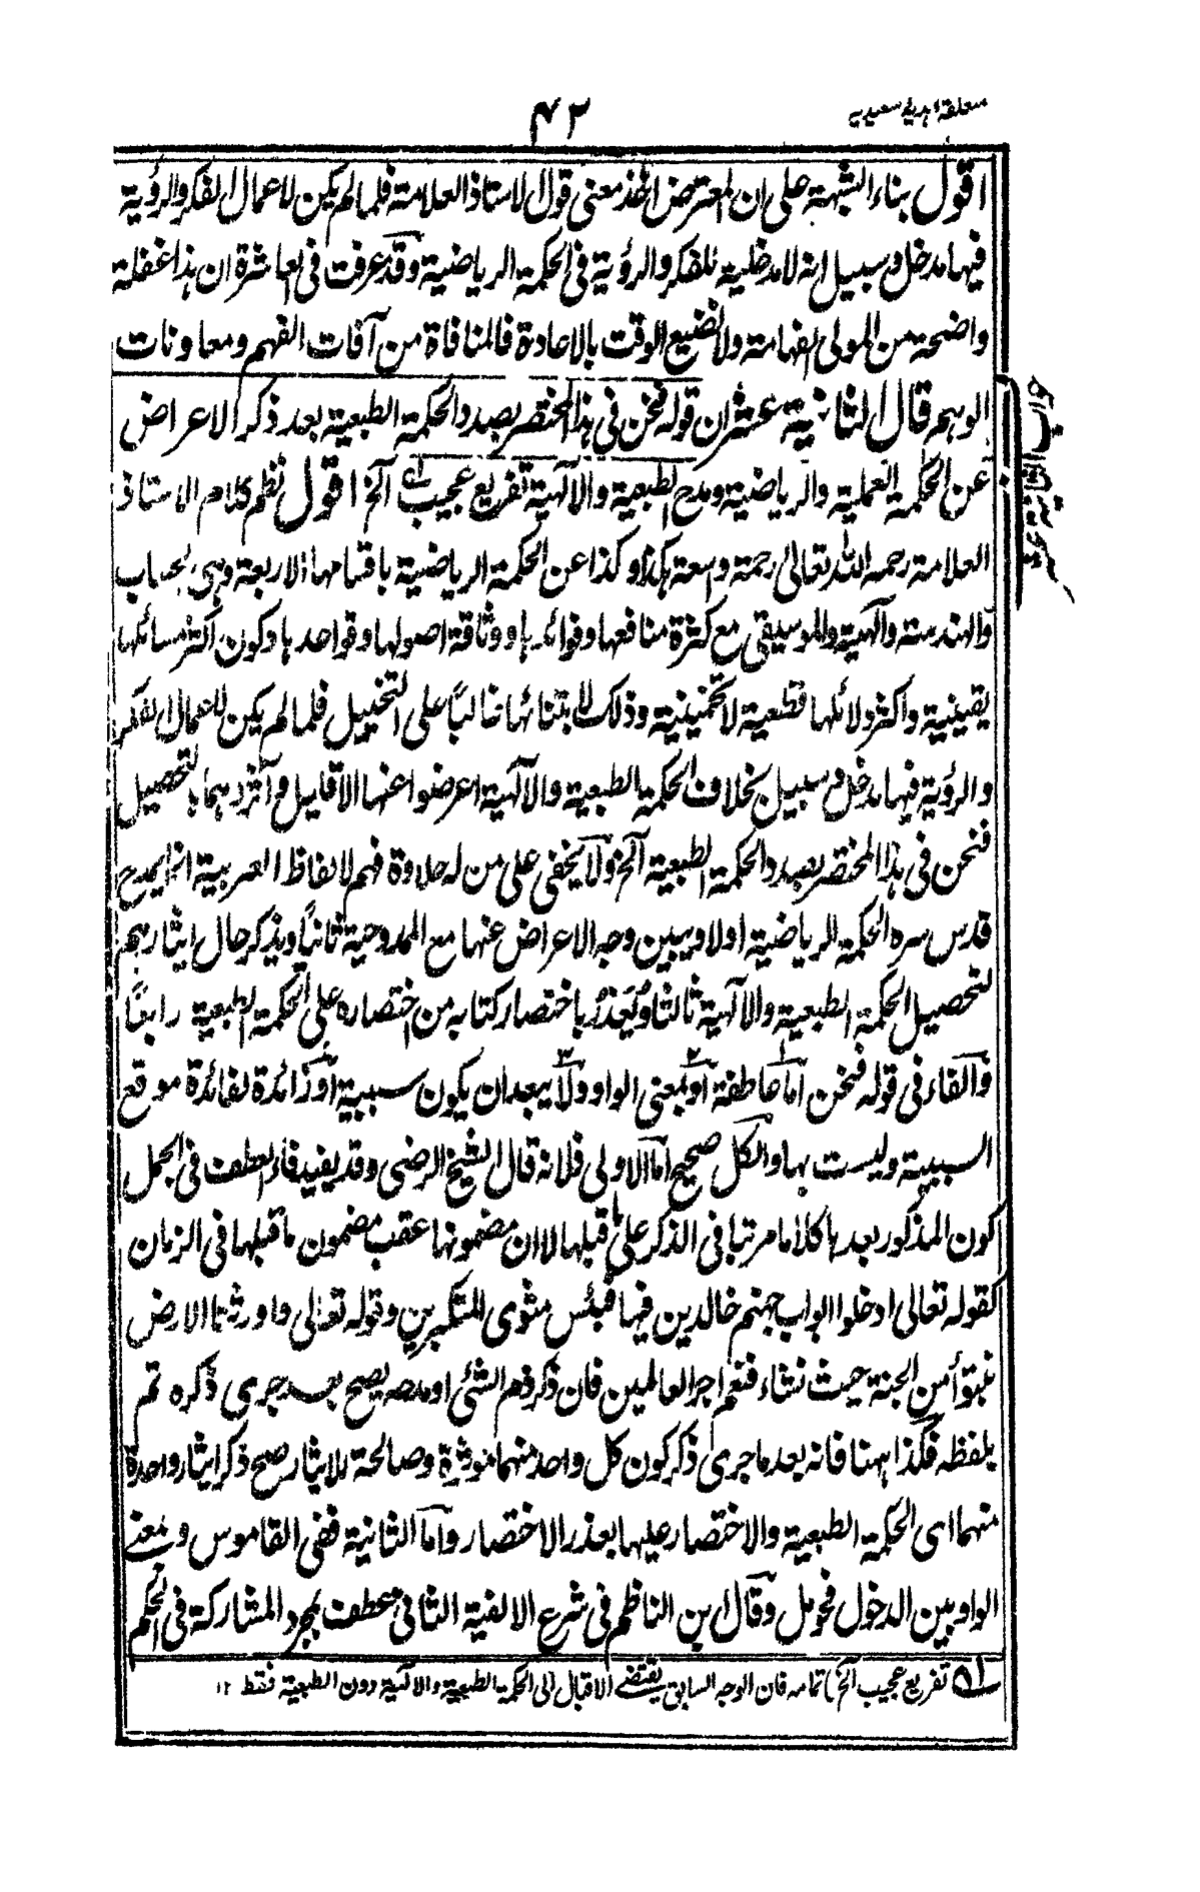 متعلقہ ہدیہ سعیدیہ
۴۲
اقول بناء الشبهة على ان المعترض اخذ معنى قول الاستاذ العلامة فلما لم يكن لاعمال الفكر والرؤية
فيها مدخل وسبيل انه لا مدخلية للفكر والرؤية في الحكمة الرياضية وقد عرفت في العاشرة ان هذا غفلة
واضحة من المولى الفهامة ولا نضيع الوقت بالاعادة فالمنافاة من آفات الفهم ومعاونات
الوهم قال الثانية عشر ان قوله فنحن في هذا المختصر بصدد الحكمة الطبعية بعد ذكر الاعراض
عن الحكمة العملية والرياضية ومدح الطبعية والالٰهية تفريع عجيب الخ اقول نظم كلام الاستاذ
العلامة رحمه الله تعالى رحمة واسعة هكذا وكذا عن الحكمة الرياضية باقسامها الاربعة وهي الحساب
والهندسة والهيئة والموسيقى مع كثرة منافعها وفوائدها ووثاقة اصولها وقواعدها وكون اكثر مسائلها
يقينية واكثر دلائلها قطعية لا تخمينية وذلك لابتنائها غالباً على التخييل فلما لم يكن لاعمال الفكر
والرؤية فيها مدخل وسبيل بخلاف الحكمة الطبعية والالٰهية اعرضوا عنها الا قليل وآثروهما بالتحصيل
فنحن في هذا المختصر بصدد الحكمة الطبعية الخ ولا يخفى على من له حلاوة فهم لالفاظ العربية انه يمدح
قدس سره الحكمة الرياضية اولا ويبين وجه الاعراض عنها مع الممدوحية ثانياً ويذكر حال ايثارهم
لتحصيل الحكمة الطبعية والالٰهية ثالثا ويُعذِرُ باختصار كتابه من اختصاره على الحكمة الطبعية رابعاً
والفاء في قوله فنحن اما عاطفة او بمعنى الواو ولا يبعد ان يكون سببية او زائدة لفائدة موقع
السببية وليست بها والكل صحيح اما الاولى فلانه قال الشيخ الرضى وقد يفيد فاء العطف في الجمل
كون المذكور بعدها كلاما مرتبا في الذكر على ما قبلها لا ان مضمونها عقب مضمون ما قبلها في الزمان
كقوله تعالى ادخلوا ابواب جهنم خالدين فيها فبئس مثوى المتكبرين وقوله تعالى واورثنا الارض
نتبوأ من الجنة حيث نشاء فنعم اجر العالمين فان ذكر ذم الشئ او مدحه يصح بعد جرى ذكره تم
بلفظه فكذا ههنا فانه بعد ما جرى ذكر كون كل واحد منهما موثرة وصالحة للايثار صح ذكر ايثار واحدة
منهما اى الحكمة الطبعية والاختصار عليها بعذر الاختصار واما الثانية ففى القاموس وبمعنى
الواو بين الدخول فحومل وقال ابن الناظم في شرح الالفية الثانى عطف لمجرد المشاركة في الحكم
جواب الثانية عشر
۱؎ تفريع عجيب الخ تمامه فان الوجه السابق يقتضى الاقبال الى الحكمة الطبعية والالٰهية دون الطبعية فقط ۱۲